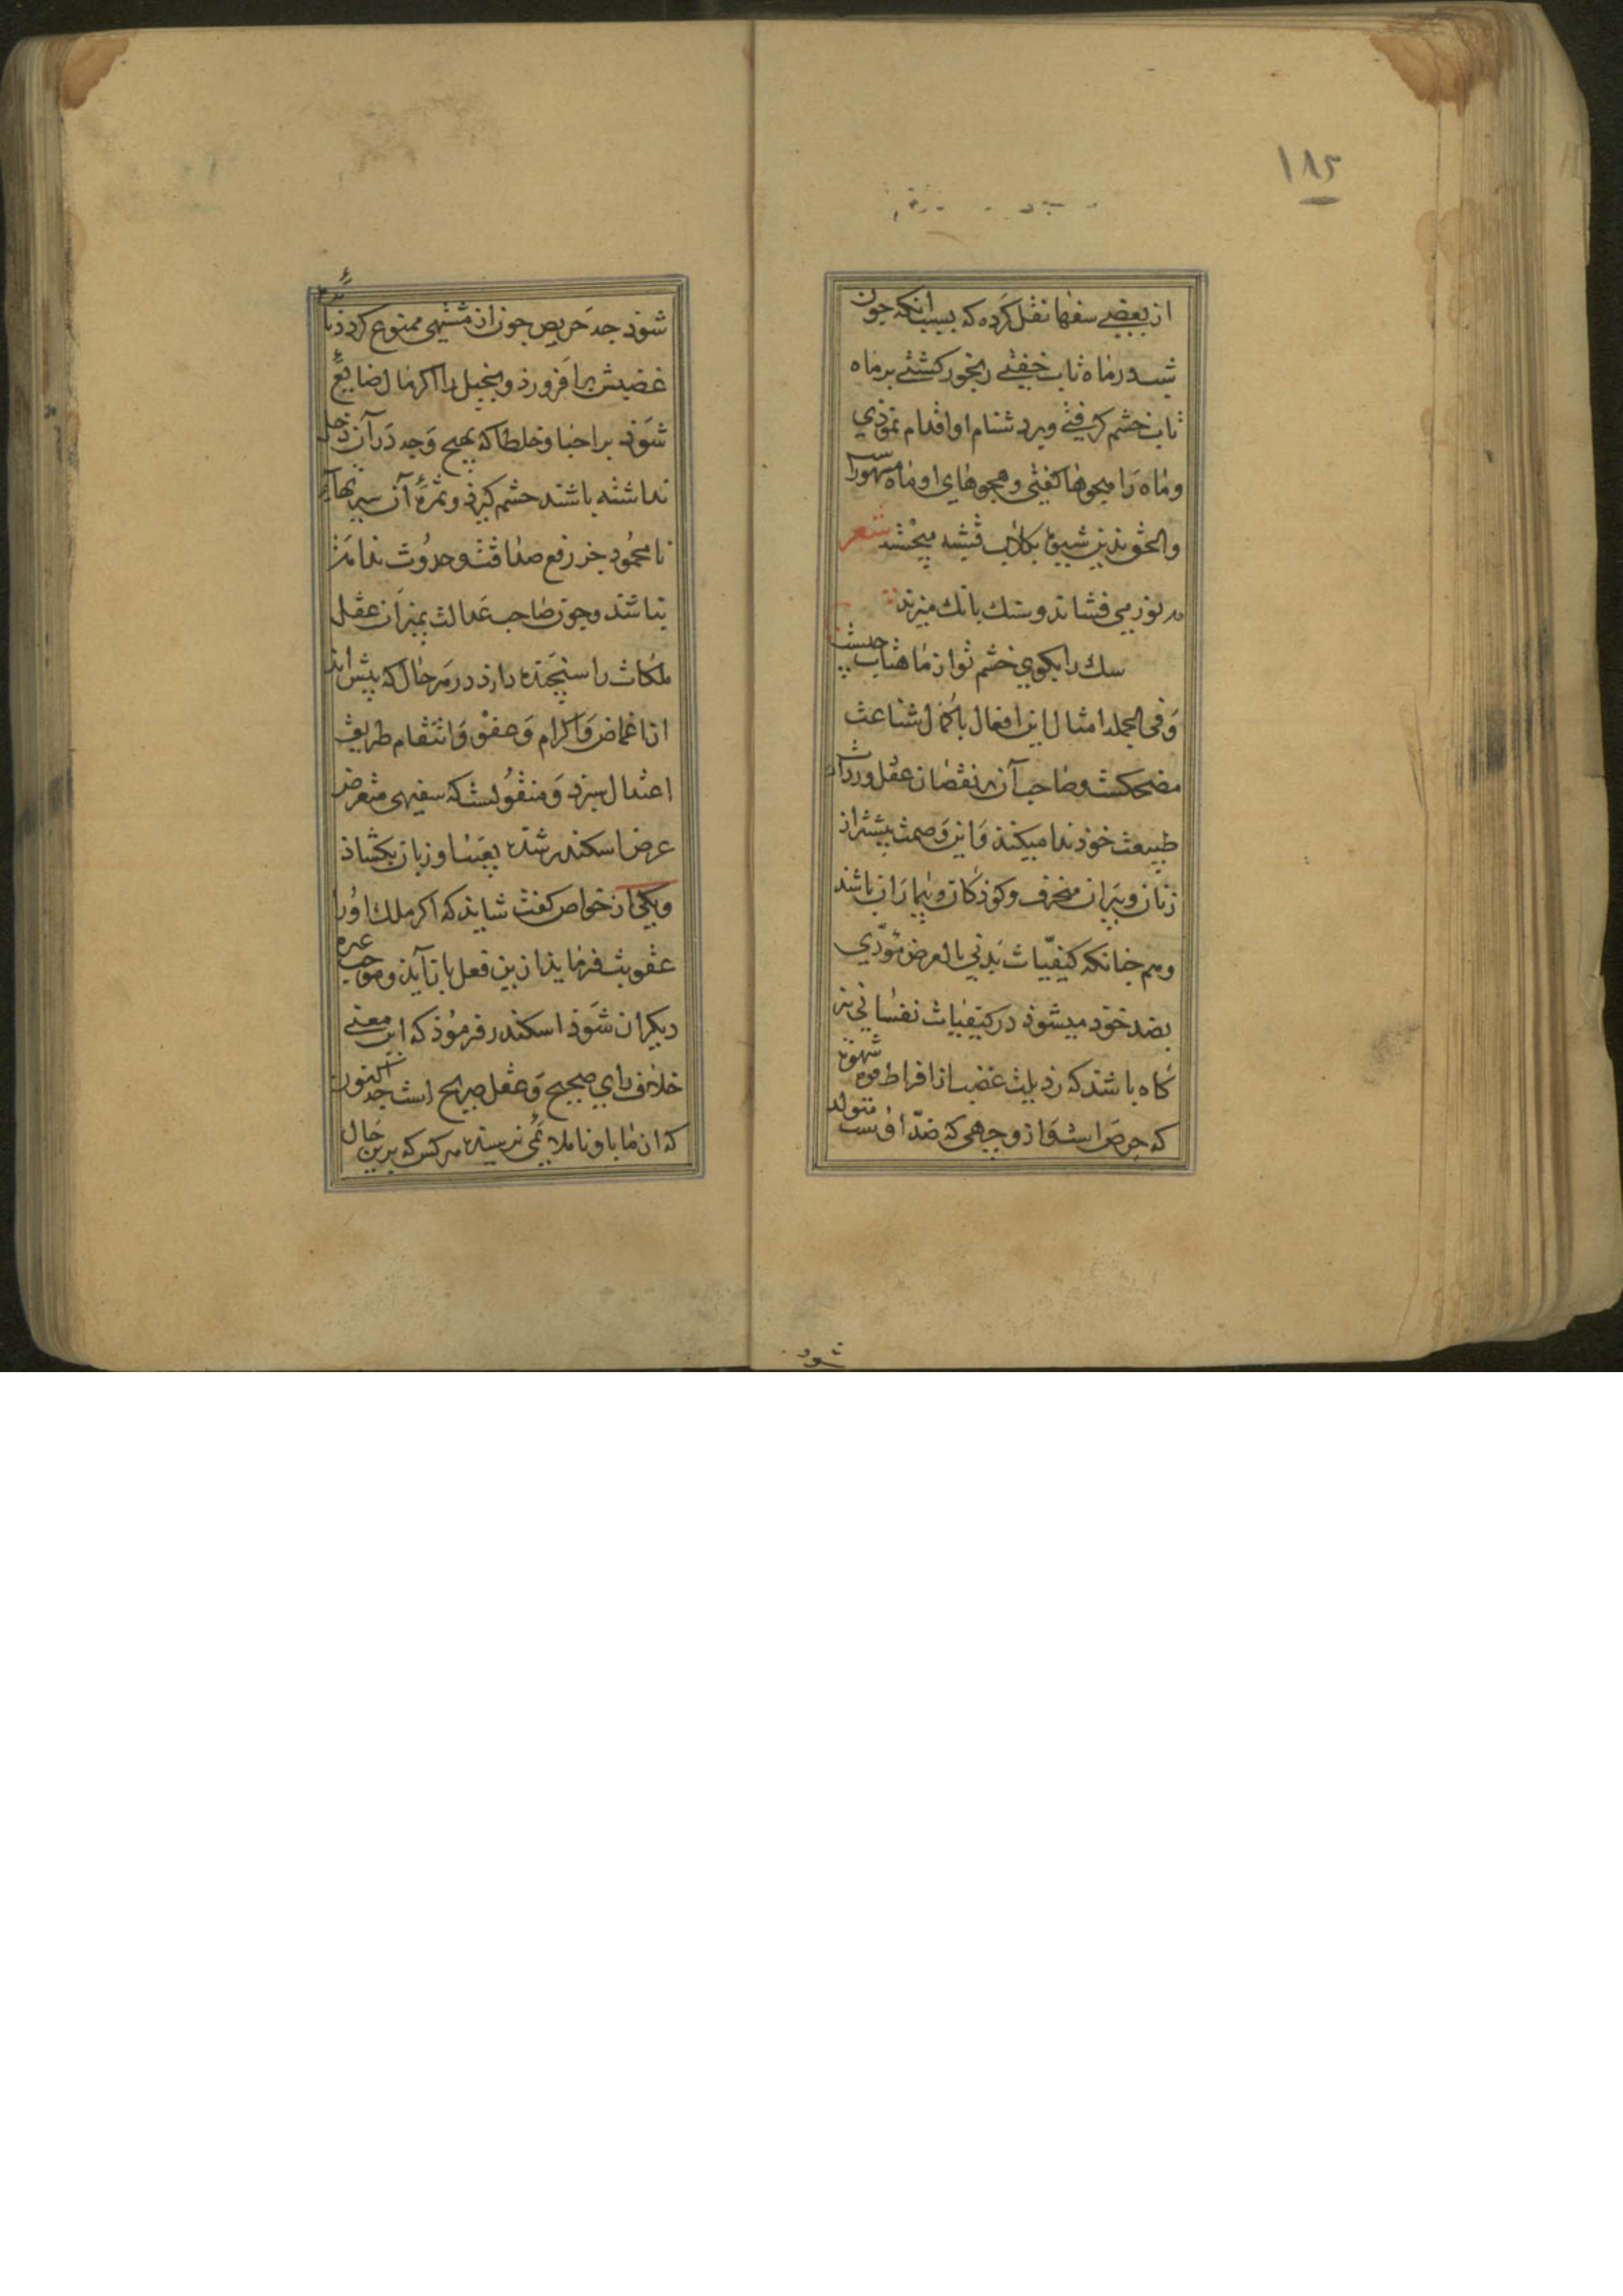 ۱۸۵
از بعضے سفها نقل کرده که بسبب آنکه جون
شب در ماه تاب خفتے رنجور کشتے بر ماه
تاب خشم کرفتے و بر دشنام او اقدام نموذي
و ماه را هجوها کفتی و هجوهای او ماه را مشهور
شعر
مه نور می فشاند و سك بانك میزند
سك را بکوي خشم تو از ماهتاب چیست
وَفی الجمله امثال این افعال با کمال شناعت
مضحکست و صاحب آن بر نقصان عقل و ردآت
طبیعت خوذ ندا میکند وَ این وَصمت بیشتر از
زنان و پیران منحرف و کوذکان و بیماران باشد
و هم جنانکه کیفیّات بَدنی بالعرض مؤدّي
بضد خوذ میشوذ در کیفیات نفسانی نیز
کاه باشد که رذیلت غضب از افراط قوه شهوة
که حرص است وَ از وجهی که ضدّ اوست متولد
شود
شوذ جه حَریص جون از مشتهی ممنوع کردذ نا
غضبش بر افروزذ و بخیل را اکر مال ضایع
شوذ بر احبا و خلطا که بهیچ وَجه دَر آن دخل
نداشته باشند خشم کیرذ و ثمرۀ آن سیرتهآء
نا محمُود جز رفع صداقت و حدُوث ندامت
نباشد و جون صاحب عَدالت بمیزان عقل
ملکات را سنجیده دارذ در هَر حال که پیش آید
از اغماض وَ اکرام وَ عفو وَ انتقام طریق
اعتدال سپرذ وَ منقُولست که سفیهی متعرض
عرض اسکندر شده بعیب او زبان بکشاذ
و یکی از خواص کفت شاید که اکر ملك اوُرا
عقوبت فرمایذ از ین فعل باز آیذ و موجب عبرة
دیکران شوَذ اسکندر فرموُذ که این معنے
خلاف راي صحیح وَ عقل صریح است جه اکنون
که از ما باو ناملایمی نرسیده هر کس که برین حال